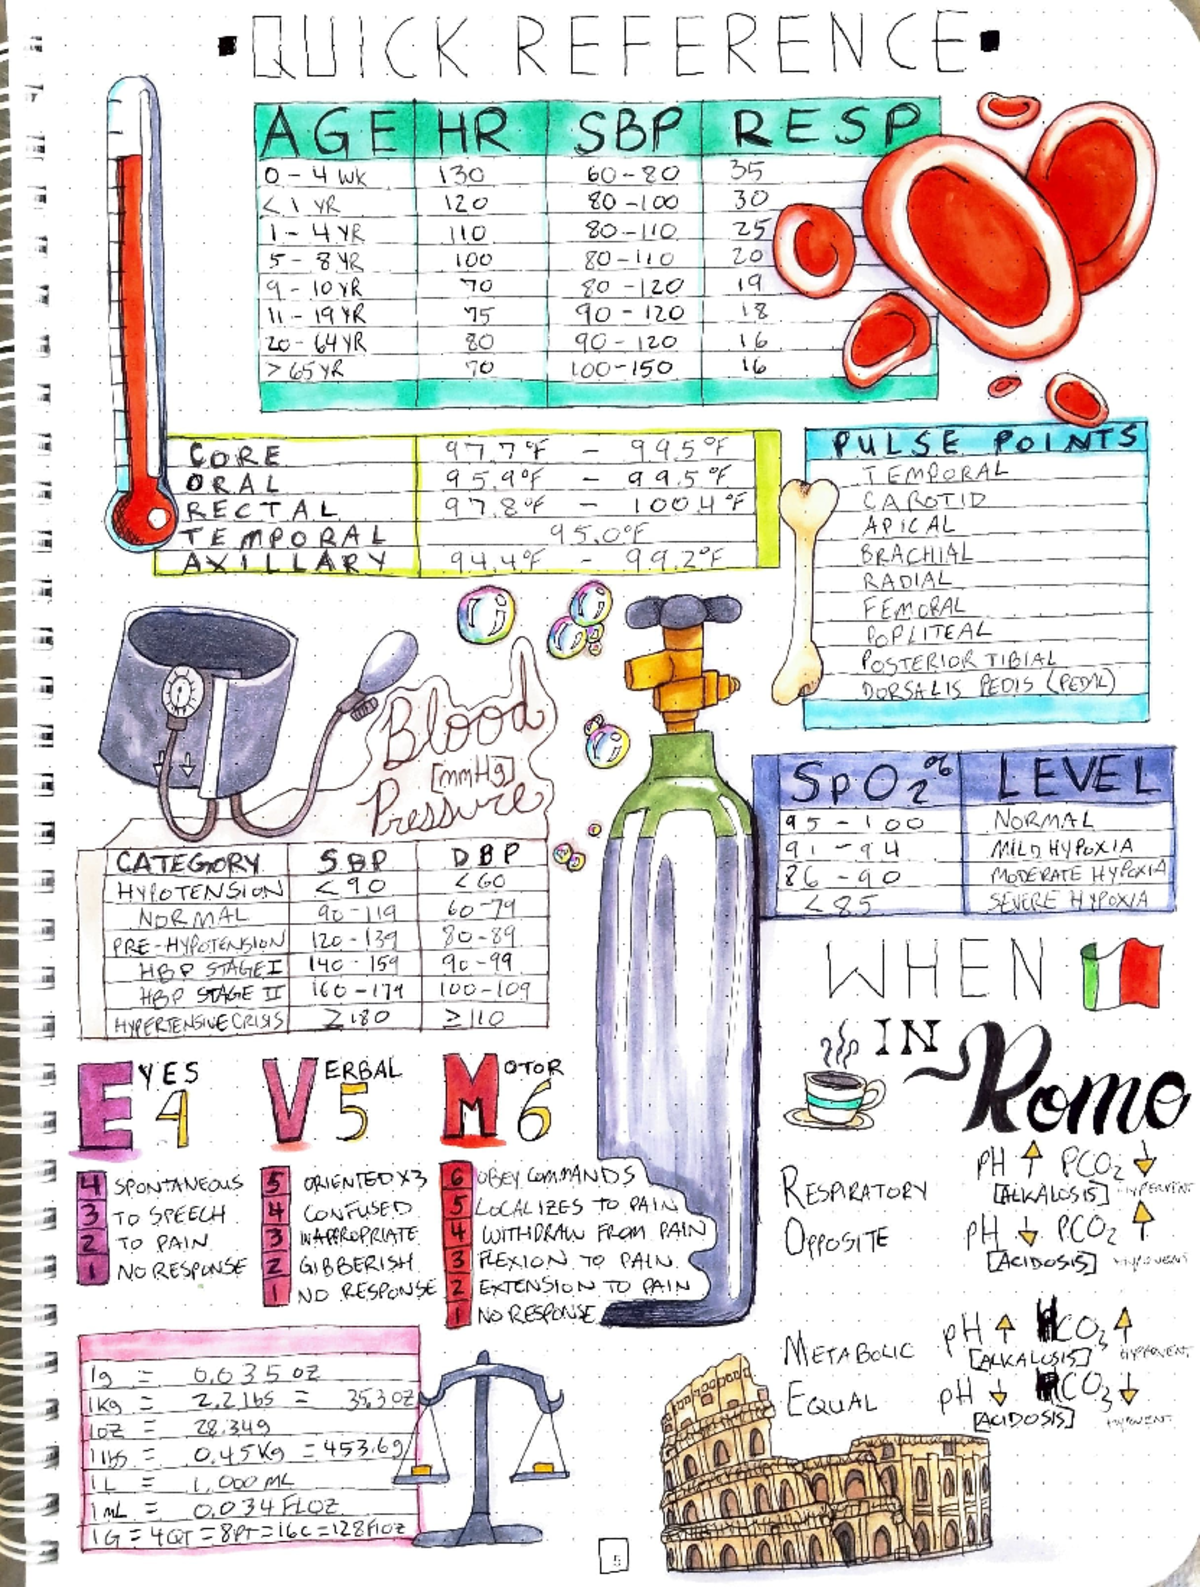 QUICK REFERENCE
AGE HR SBP RESP
0 - 4 WK 130 60-80 35
< 1 YR 120 80-100 30
1 - 4 YR 110 80-110 25
5 - 8 YR 100 80-110 20
9 - 10 YR 70 80-120 19
11 - 19 YR 75 90-120 18
20 - 64 YR 80 90-120 16
> 65 YR 70 100-150 16
CORE 97.7°F - 99.5°F
ORAL 95.9°F - 99.5°F
RECTAL 97.8°F - 100.4°F
TEMPORAL 95.0°F
AXILLARY 94.4°F - 99.2°F
PULSE POINTS
TEMPORAL
CAROTID
APICAL
BRACHIAL
RADIAL
FEMORAL
POPLITEAL
POSTERIOR TIBIAL
DORSALIS PEDIS (PEDAL)
Blood
[mmHg]
Pressure
CATEGORY SBP DBP
HYPOTENSION <90 <60
NORMAL 90-119 60-79
PRE-HYPOTENSION 120-139 80-89
HBP STAGE I 140-159 90-99
HBP STAGE II 160-179 100-109
HYPERTENSIVE CRISIS ≥180 ≥110
SpO2% LEVEL
95 - 100 NORMAL
91 - 94 MILD HYPOXIA
86 - 90 MODERATE HYPOXIA
<85 SEVERE HYPOXIA
EYES 4
4 SPONTANEOUS
3 TO SPEECH
2 TO PAIN
1 NO RESPONSE
VERBAL 5
5 ORIENTED X3
4 CONFUSED
3 INAPPROPRIATE
2 GIBBERISH
1 NO RESPONSE
MOTOR 6
6 OBEY COMMANDS
5 LOCALIZES TO PAIN
4 WITHDRAW FROM PAIN
3 FLEXION TO PAIN
2 EXTENSION TO PAIN
1 NO RESPONSE
WHEN
IN
Rome
RESPIRATORY
OPPOSITE
pH ↑ PCO2 ↓
[ALKALOSIS] HYPERVENT
pH ↓ PCO2 ↑
[ACIDOSIS] HYPOVENT
METABOLIC
EQUAL
pH ↑ HCO3 ↑
[ALKALOSIS] HYPOVENT
pH ↓ HCO3 ↓
[ACIDOSIS]
1g = 0.035 OZ
1Kg = 2.2 lbs = 35.3 OZ
1OZ = 28.34g
1lbs = 0.45 Kg = 453.6g
1L = 1,000 ML
1mL = 0.034 FLOZ
1G = 4QT = 8PT = 16C = 128FlOZ
5